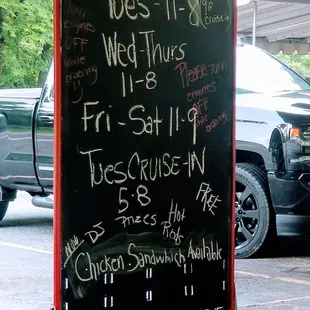 Tues-11-8
cruise-in
Wed-Thurs
11-8
engines
OFF
while
ordering
Please turn
engines
OFF
while
ordering
Fri-Sat 11-9
Tues CRUISE-IN
5-8
FREE
DJ
Prizes
Hot
Rods
Now
Chicken Sandwhich Available